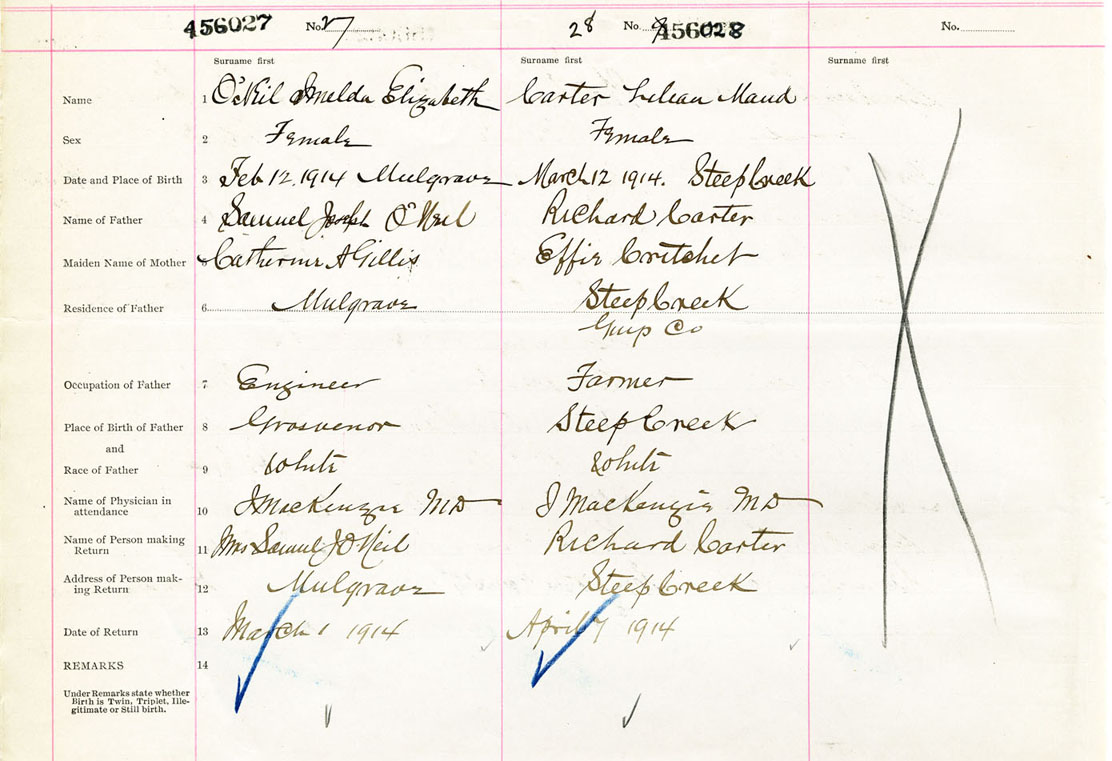 456027 No. 27 28 No. 456028 No.
Surname first Surname first Surname first
Name 1 O'Neil Imelda Elizabeth Carter Lilean Maud
Sex 2 Female Female
Date and Place of Birth 3 Feb 12, 1914 Mulgrave March 12 1914. Steep Creek
Name of Father 4 Samuel Joseph O'Neil Richard Carter
Maiden Name of Mother 5 Catherine A Gillis Effie Critchet
Residence of Father 6 Mulgrave Steep Creek
Guys Co
Occupation of Father 7 Engineer Farmer
Place of Birth of Father 8 Grosvenor Steep Creek
and
Race of Father 9 White White
Name of Physician in
attendance 10 J MacKenzie MD J MacKenzie MD
Name of Person making
Return 11 Mrs Samuel J O'Neil Richard Carter
Address of Person mak-
ing Return 12 Mulgrave Steep Creek
Date of Return 13 March 1 1914 April 7 1914
REMARKS 14
Under Remarks state whether
Birth is Twin, Triplet, Ille-
gitimate or Still birth.